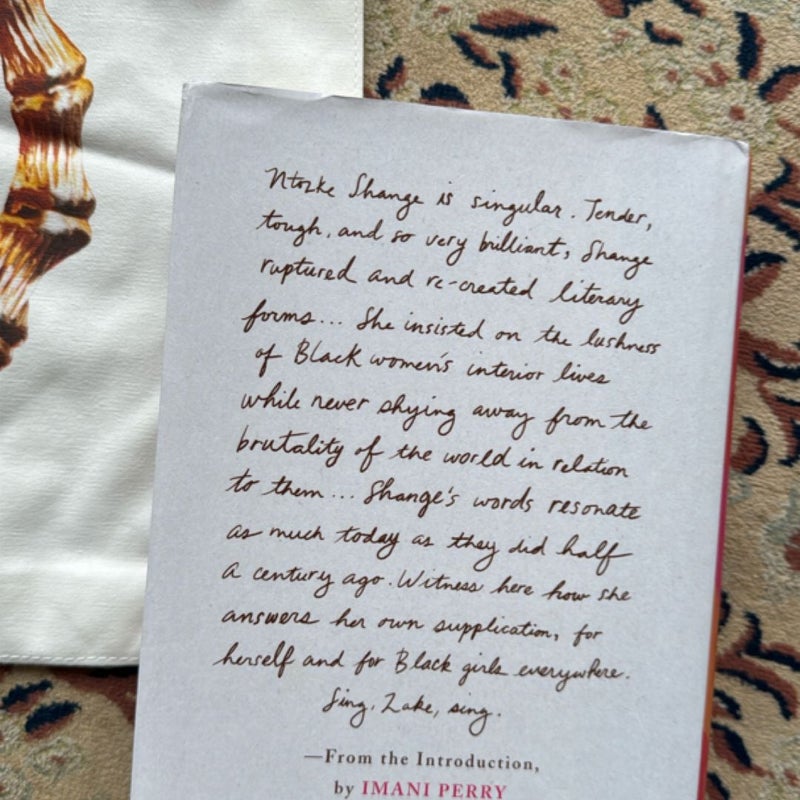 Ntozke Shange is singular. Tender,
tough, and so very brilliant, Shange
ruptured and re-created literary
forms... She insisted on the lushness
of Black women's interior lives
while never shying away from the
brutality of the world in relation
to them... Shange's words resonate
as much today as they did half
a century ago. Witness here how she
answers her own supplication, for
herself and for Black girls everywhere.
Sing, Zake, sing.
—From the Introduction,
by IMANI PERRY